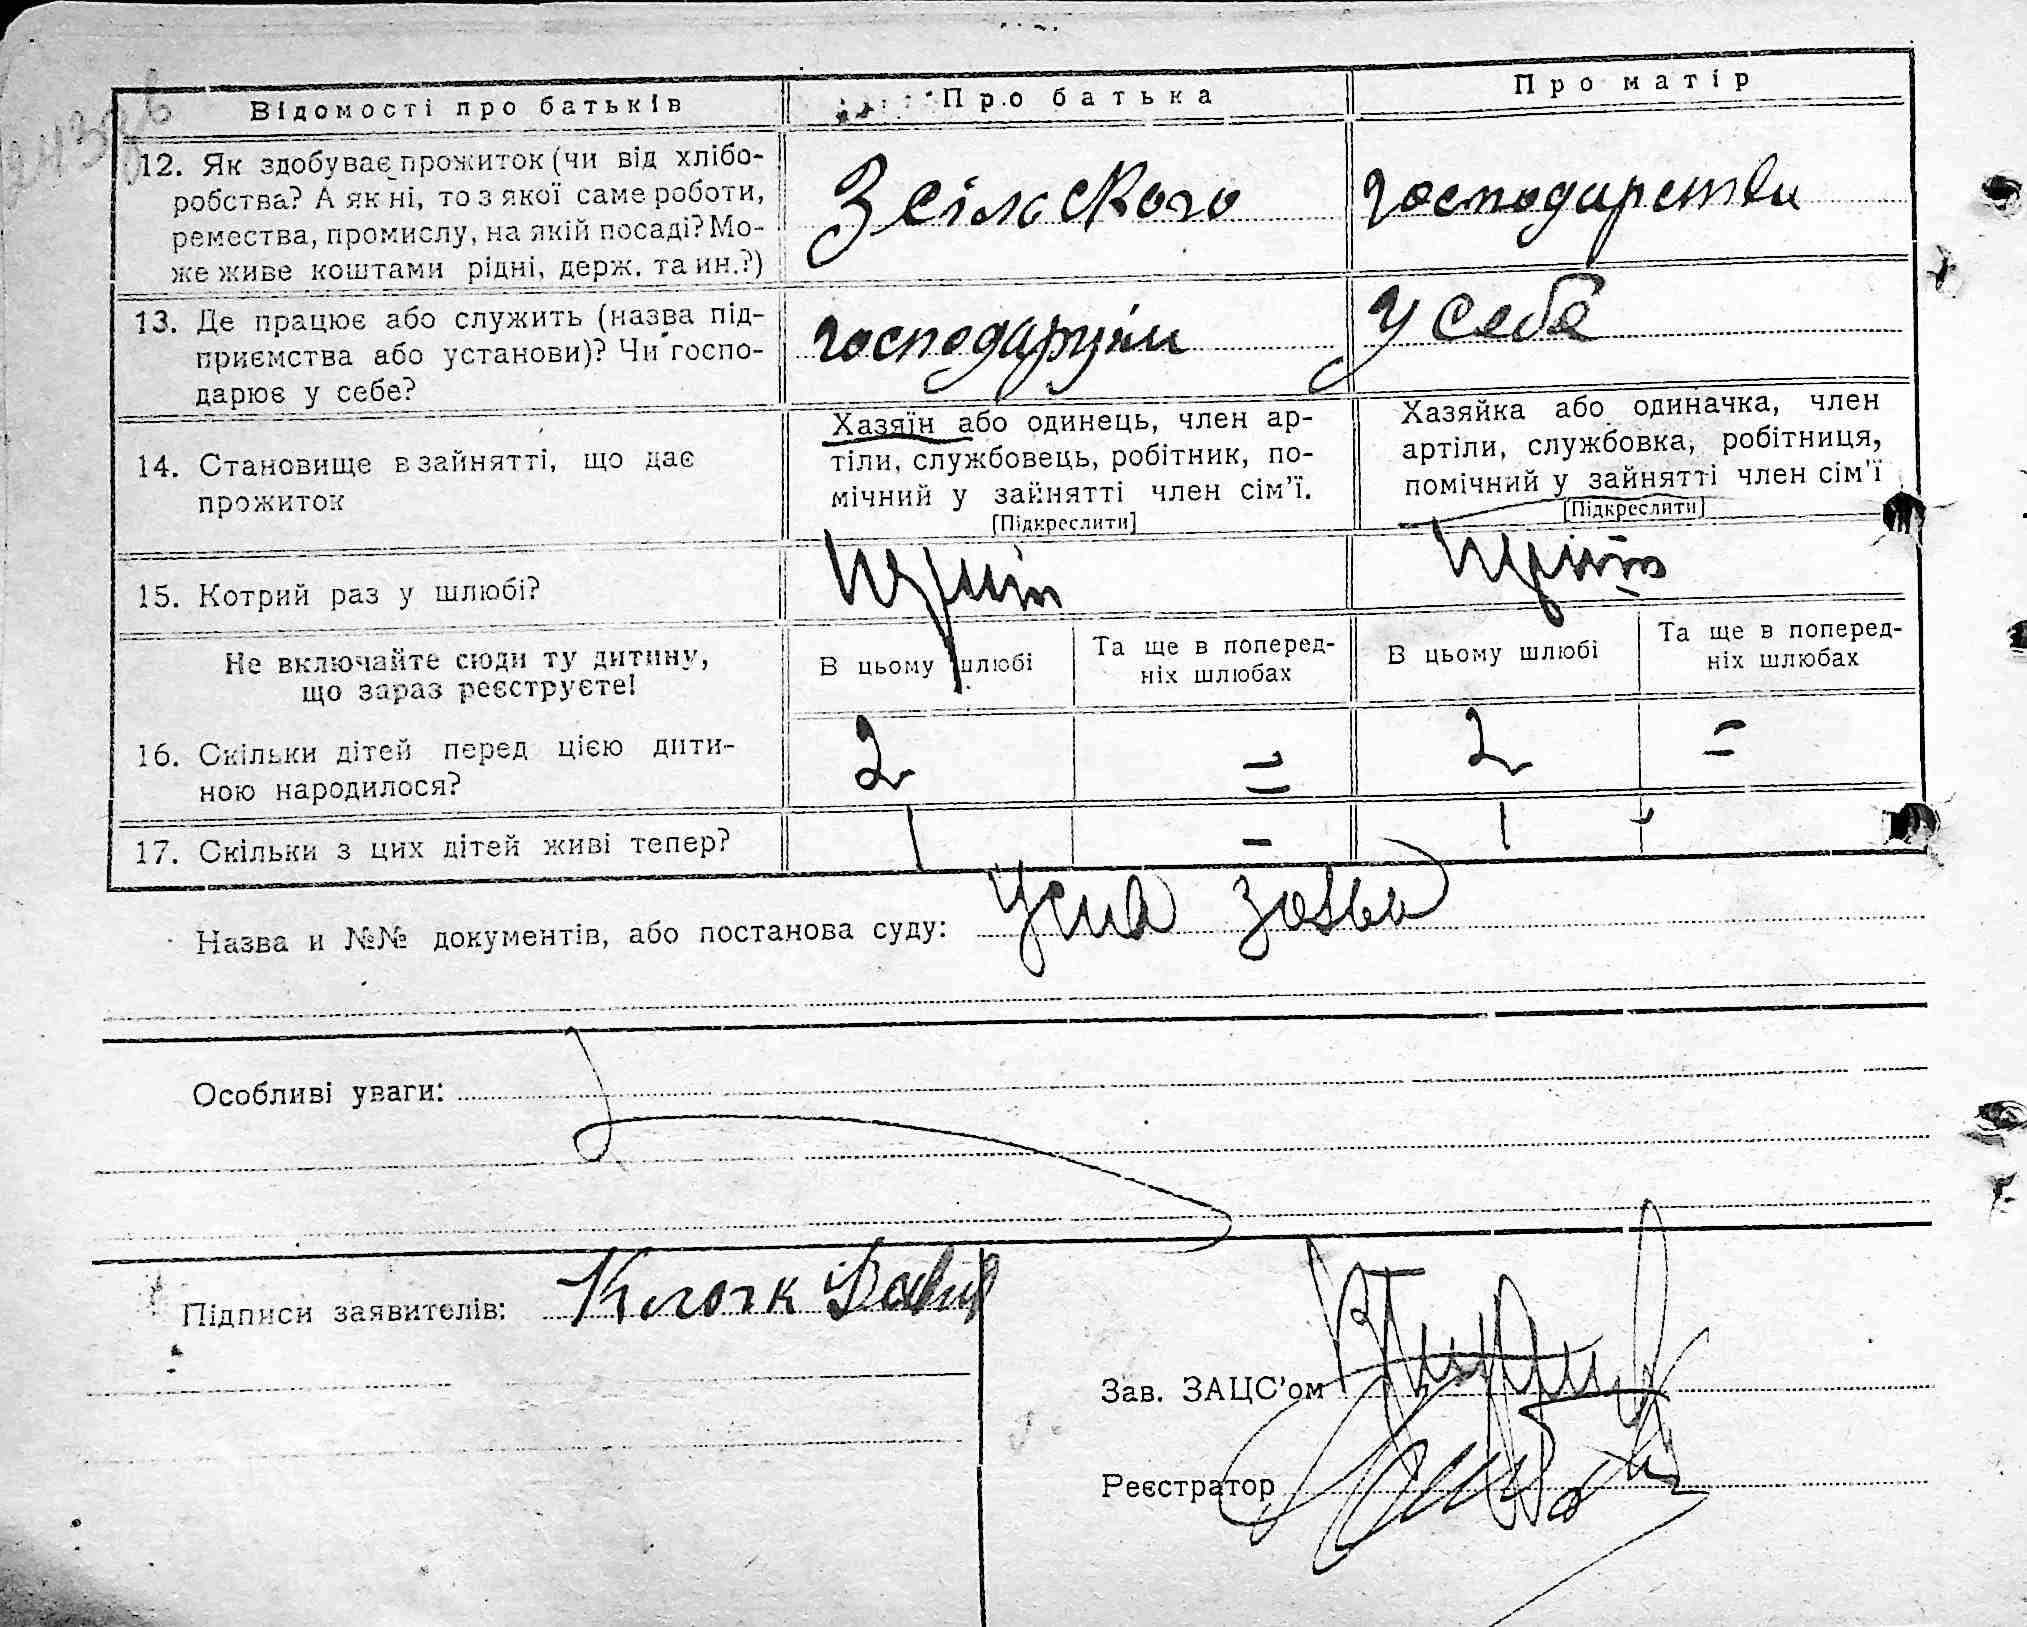 Відомості про батьків
Про батька
Про матір
12. Як здобуває прожиток (чи від хлібо-
робства? А як ні, то з якої саме роботи,
ремества, промислу, на якій посаді? Мо-
же живе коштами рідні, держ. та ин.?)
З сільского господарства
13. Де працює або служить (назва під-
приємства або установи)? Чи госпо-
дарює у себе?
у себе
14. Становище в зайнятті, що дає
прожиток
Хазяїн або одинець, член ар-
тіли, службовець, робітник, по-
мічний у зайнятті член сім'ї.
[Підкреслити]
Хазяйка або одиначка, член
артіли, службовка, робітниця,
помічний у зайнятті член сім'ї
[Підкреслити]
15. Котрий раз у шлюбі?
Не включайте сюди ту дитину,
що зараз реєструєте!
В цьому шлюбі
Та ще в поперед-
ніх шлюбах
В цьому шлюбі
Та ще в поперед-
ніх шлюбах
16. Скільки дітей перед цією дити-
ною народилося?
2 = 2 =
17. Скільки з цих дітей живі тепер?
1 - 1 -
Назва и №№ документів, або постанова суду: Усна заява
Особливі уваги:
Підписи заявителів: Клочк Давид
Зав. ЗАЦС'ом
Реєстратор